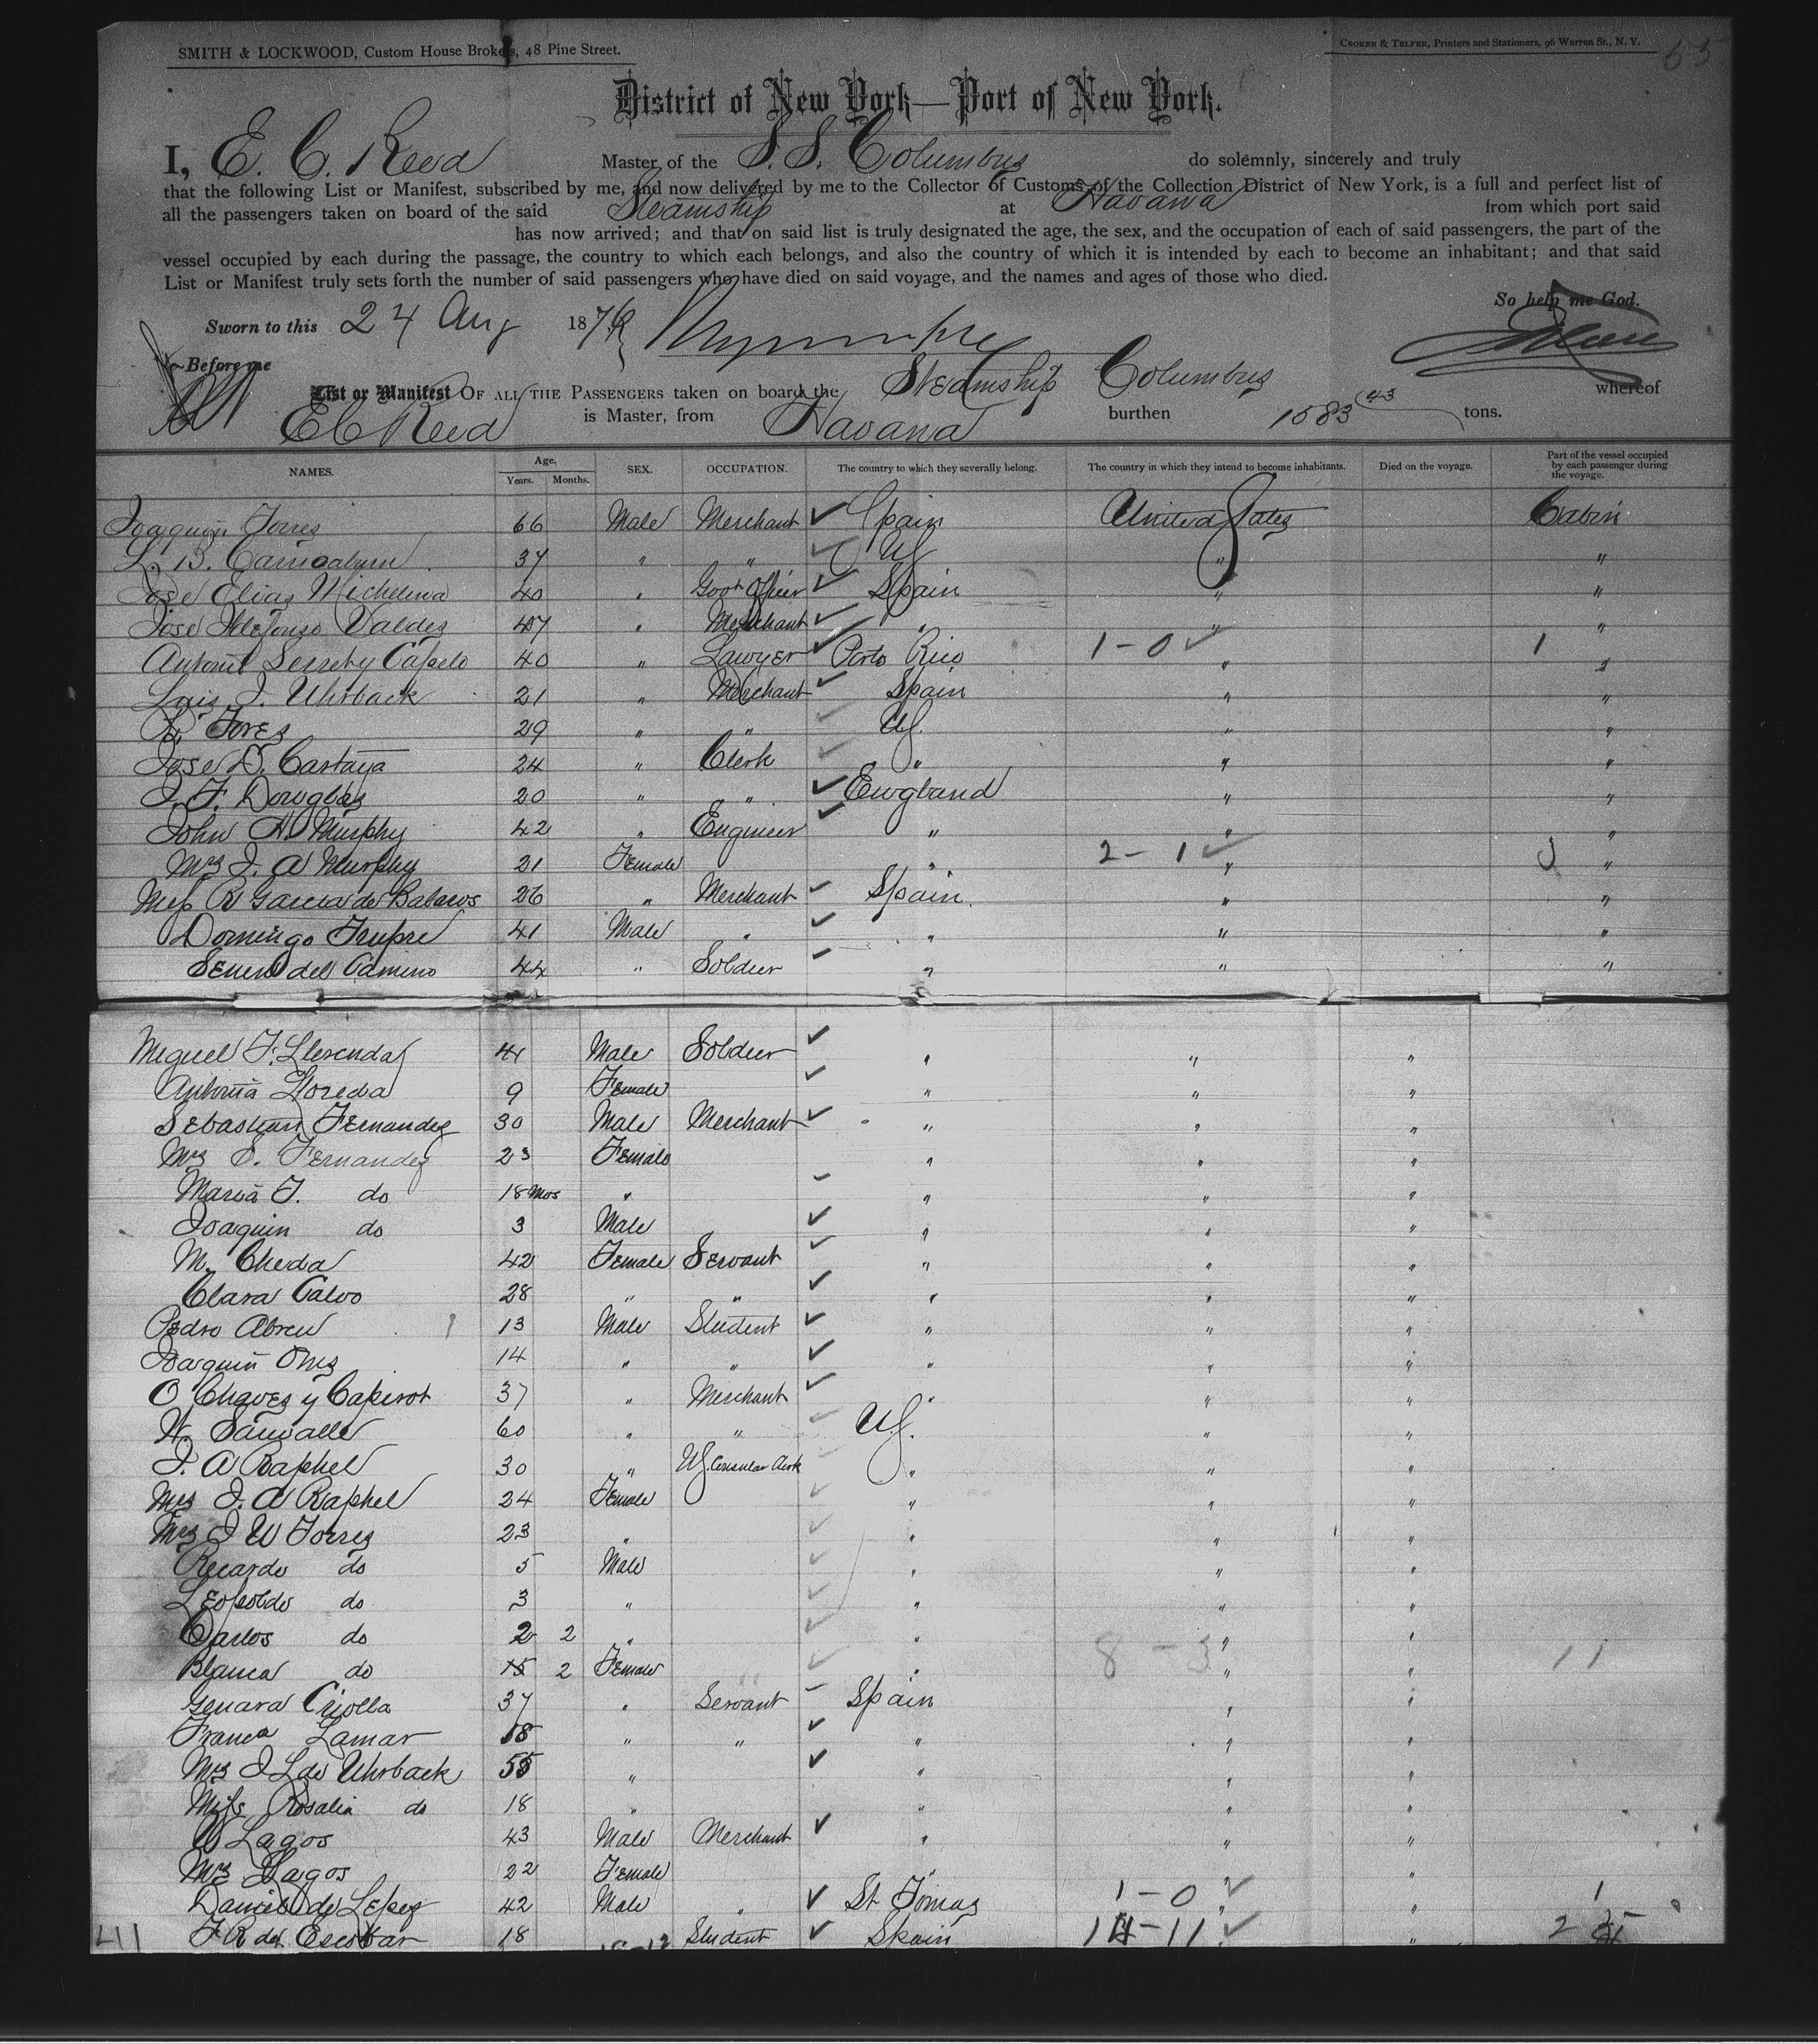 SMITH & LOCKWOOD, Custom House Brokers, 48 Pine Street.
CROKER & TELFER, Printers and Stationers, 96 Warren St., N. Y.
District of New York—Port of New York.
I, E. C. Reed Master of the S. S. Columbus do solemnly, sincerely and truly
that the following List or Manifest, subscribed by me, and now delivered by me to the Collector of Customs of the Collection District of New York, is a full and perfect list of
all the passengers taken on board of the said Steamship at Havana from which port said
has now arrived; and that on said list is truly designated the age, the sex, and the occupation of each of said passengers, the part of the
vessel occupied by each during the passage, the country to which each belongs, and also the country of which it is intended by each to become an inhabitant; and that said
List or Manifest truly sets forth the number of said passengers who have died on said voyage, and the names and ages of those who died.
So help me God.
Sworn to this 24 Aug 187
Before me
List or Manifest OF ALL THE PASSENGERS taken on board the Steamship Columbus whereof
E C Reed is Master, from Havana burthen 1583 43 tons.
NAMES. Age. Years. Months. SEX. OCCUPATION. The country to which they severally belong. The country in which they intend to become inhabitants. Died on the voyage. Part of the vessel occupied by each passenger during the voyage.
Joaquin Torres 66 Male Merchant Spain United States Cabin
L. B. 37 " " US " "
Jose Elias Michelena 40 " Govt Officer Spain " "
Jose Ildefonso Valdes 47 " Merchant " " "
Antonio Serret y Capelo 40 " Lawyer Porto Rico 1-0 " 1 "
Luis J. Uhrback 21 " Merchant Spain " "
Torres 29 " " US. " "
Jose D. Cartaya 24 " Clerk " " "
J. F. Douglas 20 " " England " "
John A. Murphy 42 " Engineer " " "
Mrs J. A Murphy 21 Female " 2-1 " 3 "
Miss R Garcia de 26 " Merchant Spain. " "
Domingo 41 Male " " " "
del Camino 44 " Soldier " " "
Miguel F. 41 Male Soldier " " "
Antonia Loreda 9 Female " " "
Sebastian Fernandez 30 Male Merchant " " "
Mrs S. Fernandez 23 Female " " "
Maria F. do 18 Mos " " " "
Joaquin do 3 Male " " "
M. Cheda 42 Female Servant " " "
Clara Calvo 28 " " " " "
Pedro Abreu 13 Male Student " " "
Joaquin 14 " " " " "
O Chaves y 37 " Merchant " " "
60 " " US. " "
J. A Raphel 30 " US. Consular Clerk " " "
Mrs J. A Raphel 24 Female " " "
Mrs J W Torres 23 " " " "
Ricardo do 5 Male " " "
Leopoldo do 3 " " " "
Carlos do 2 2 " " " "
Blanca do 15 2 Female " 8-3 " " 11
Genara Criolla 37 " Servant Spain " "
Franca Lamar 18 " " " " "
Mrs J L de Uhrback 55 " " " "
Miss Rosalia do 18 " " " "
Lagos 43 Male Merchant " " "
Mrs Lagos 22 Female " " "
Daniel de Lopez 42 Male " St Tomas 1-0 " " 1
F. R del Escobar 18 Student Spain 14-11 " " 25